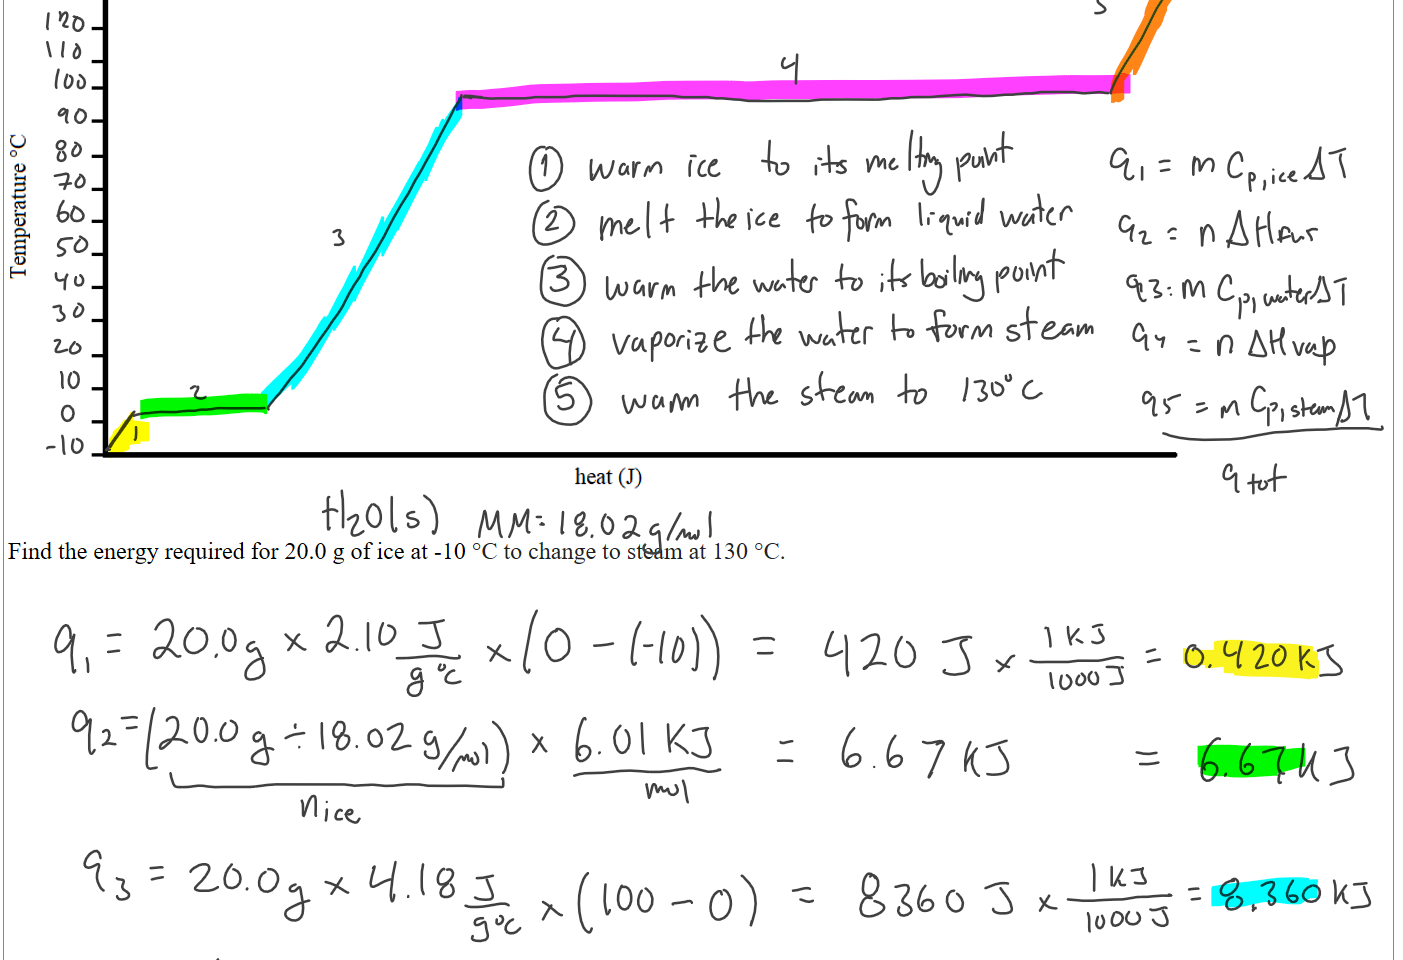 5
120
110
100
90
80
70
60
50
40
30
20
10
0
-10
Temperature °C
4
3
2
1
① warm ice to its melting point q₁ = m Cp,ice ΔT
② melt the ice to form liquid water q₂ = n ΔHfus
③ warm the water to its boiling point q3: m Cp, water ΔT
④ vaporize the water to form steam q₄ = n ΔHvap
⑤ warm the steam to 130°C q5 = m Cp, steam ΔT
q tot
heat (J)
H₂O(s) MM = 18.02 g/mol
Find the energy required for 20.0 g of ice at -10 °C to change to steam at 130 °C.
q₁ = 20.0g × 2.10 J/g°C × (0 - (-10)) = 420 J × 1 KJ/1000 J = 0.420 KJ
q₂ = (20.0 g ÷ 18.02 g/mol) × 6.01 KJ/mol = 6.67 KJ = 6.67 KJ
nice
q₃ = 20.0g × 4.18 J/g°C × (100 - 0) = 8360 J × 1 KJ/1000 J = 8.360 KJ